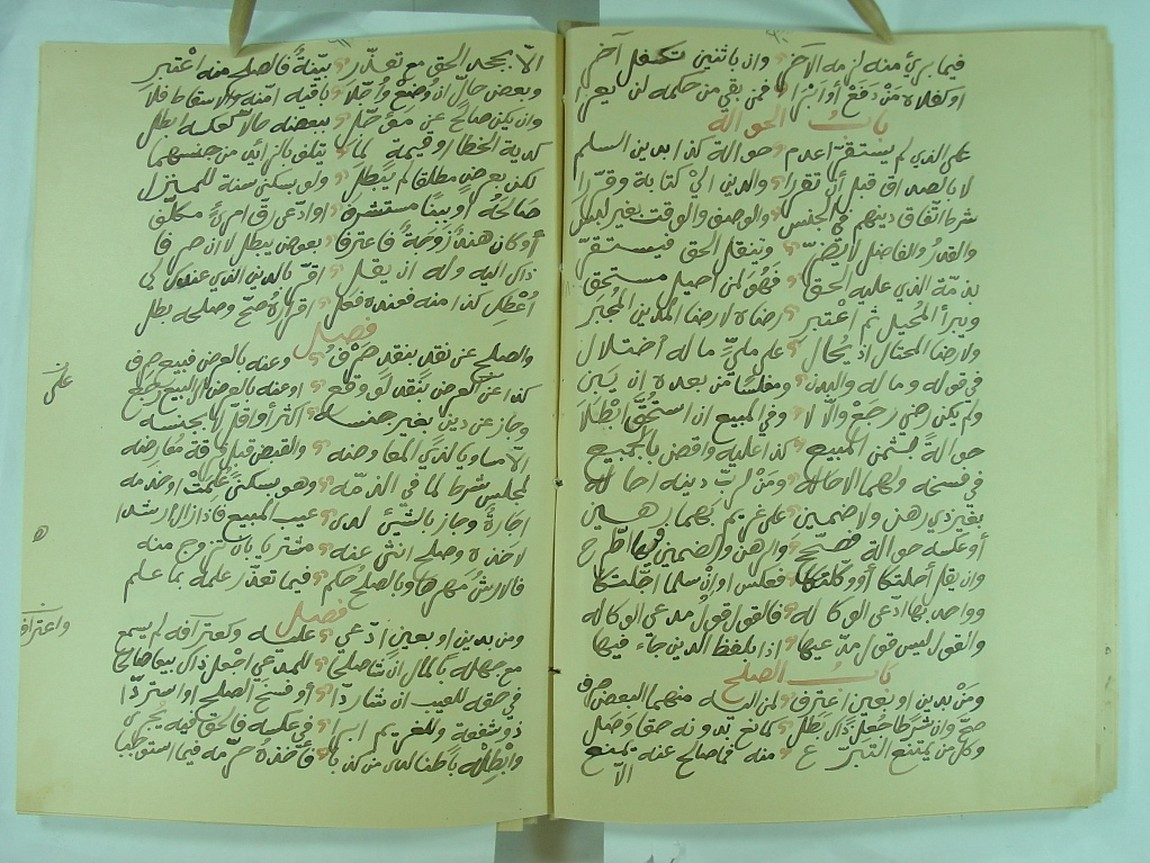 فيما بريء منه لزمه الآخر وان باثنين تكفل آخر
او كفلاه من دفع أو ابرا فمن بقي من حكمه لن يعرا
باب الحوالة
على الذي لم يستقر اعدم حوالة كذا بدين السلم
لا بالصداق قبل أن تقررا والدين الي كتابة وقررا
شرط اتفاق دينهم في الجنس والوصف والوقت بغير لبس
والقدر والفاضل لا يضر وينقل الحق فيستقر
بذمة الذي عليه الحق فهو لمن احيل مستحق
ويبرأ المحيل ثم اعتبر رضاه لا رضا المدين المجبر
ولا رضا المحتال اذ يحال على مليء ما له اختلال
في قوله وماله والبدن ومفلسا من بعده ان يبن
ولم يكن رضي رجع والا لا وفي المبيع ان استحق ابطلا
حوالة بثمن المبيع كذا عليه واقض بالجميع
في فسخه ولهما الاحاله ومن لرب دينه احاله
بغير ذي رهن ولا ضمين على غريم بهما رهين
أو عكسه حوالة فصحح والرهن والضمين فيها اطرح
وان يقل أحلتكا أو وكلتكا فعكس او ان سلما احلتكا
وواحد بها ادعى الوكاله فالقول قول مدعي الوكاله
والقول ليس قول مدعيها اذا بلفظ الدين جاء فيها
باب الصلح
ومن بدين او بعين اعترف لمن له منهما البعض صرف
صح وان شرطا جعل ذاك بطل كما نع بدونه حقا وصل
وكل من يمتنع التبرع منه فما صالح عنه يمنع
الا
الا بجحد الحق مع تعذر بينة فالصلح منه اعتبر
وبعض حال ان وضع وأجلا باقيه امنه والاسقاط فلا
وان يكن صالح عن مؤجل ببعضه حالا كعكسه ابطل
كدية الخطا او قيمة لما يتلف بالزائد من جنسهما
لكن بعرض مطلقا لم يبطل ولو بسكنى سنة للمنزل
صالحه أو بيتا مستشرقة او ادعى رق امرئ مكلف
أو كان هند زوجة فاعترفا بعوض يبطل لا ان صرفا
ذاك اليه وله ان يقل اقر بالدين الذي عندك لي
أعطك كذا منه فعنده فعل اقراره صح وصلحه بطل
فصل
والصلح عن نقد بنقد صرف وعنه بالعرض فبيع صرف
كذا عن العرض بنقد لو وقع او عنه بالعرض الى البيع رجع
وجاز عن دين بغير جنسه اكثر أو اقل لا بجنسه
الا مساويا لذي المعاوضه والقبض قبل فرقة مفارضه
لمجلس شرط لما في الذمه وهو بسكنى علمت او خدمه
اجارة وجاز بالشيء لدى عيب المبيع فاذا زال ارددا
لاخذه وصلح انثى عنه مشتريا بان تزوج منه
فالارش مهرها وبالصلح حكم فيما تعذر علمه بما علم
فصل
ومن بدين او بعين ادعي عليه وكعترافه لم يسمع
مع جهله بالمال ان تصالحا للمدعي اجعل ذاك بيعا صالحا
في حقه للعيب ان شا ردا أو فسخ الصلح او استردا
ذو شفعة وللغريم ابرا في عكسه فالحق فيه يجري
وابطله باطنا لدى من كذبا فأخذه حرمه فيما استوجبا
على
ه
واعترافه